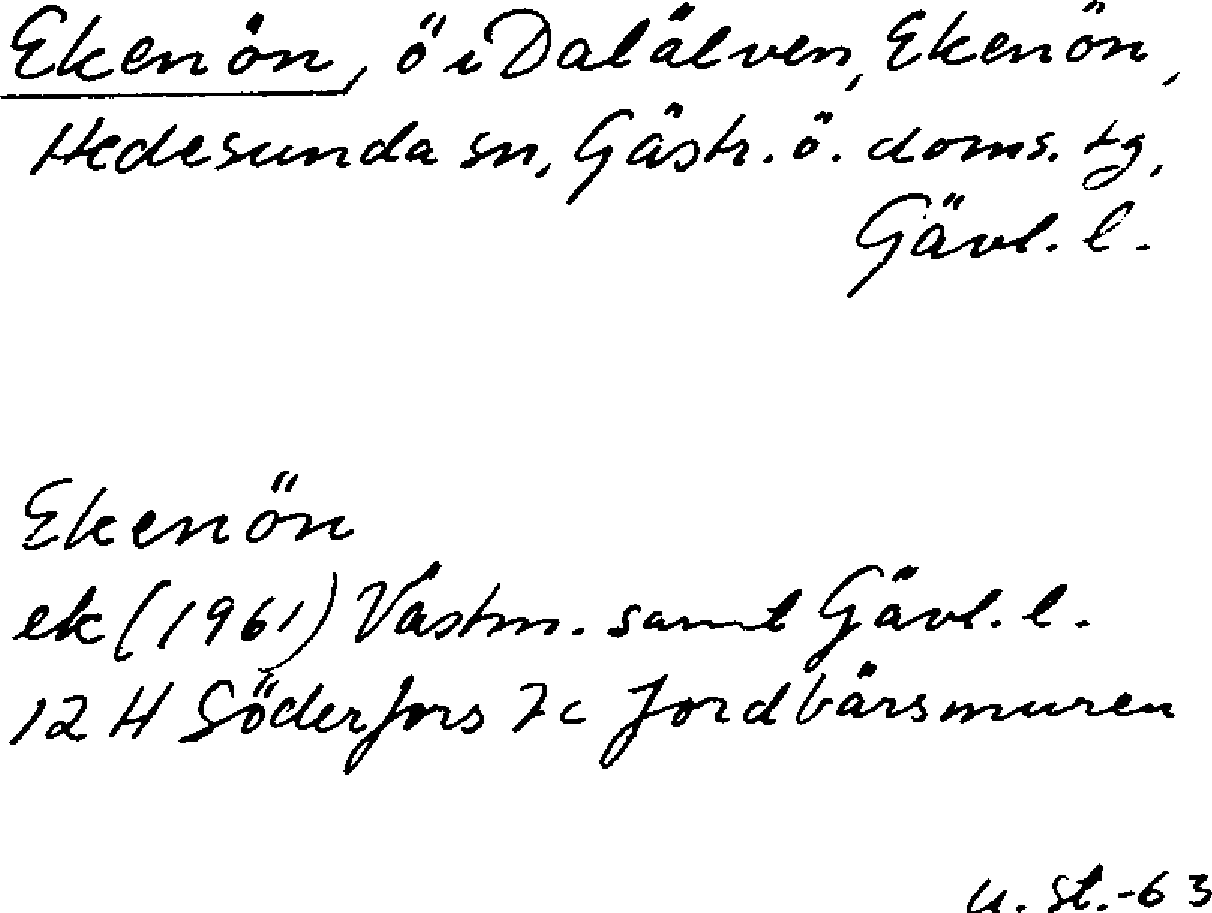 Ekenön, ö i Dalälven, Ekenön,
Hedesunda sn, Gästr. ö. doms. tg,
Gävl. l.
Ekenön
ek (1961) Västm. samt Gävl. l.
12 H Söderfors 7c Jordbärsmuren
u. St.-63